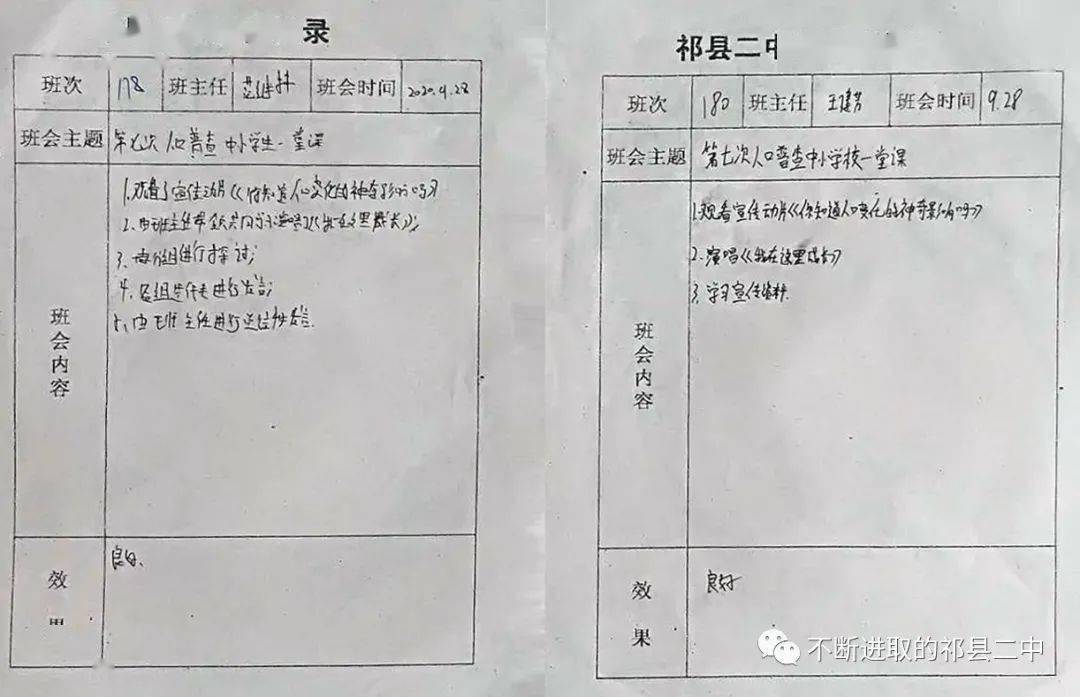 录
班次 178 班主任 范继林 班会时间 2020.9.28
班会主题 第七次人口普查中小学生一堂课
班会内容
1.观看了宣传动片《你知道人口变化的神奇影响吗》
2、由班主任带领共同演唱《我在这里成长》;
3、按小组进行探讨;
4、各组代表进行发言;
5、由班主任进行总结性发言.
效果
良好、
祁县二中
班次 180 班主任 王建芳 班会时间 9.28
班会主题 第七次人口普查中小学校一堂课
班会内容
1.观看宣传动片《你知道人口变化的神奇影响吗》
2.演唱《我在这里成长》
3.学习宣传资料.
效果
良好
不断进取的祁县二中